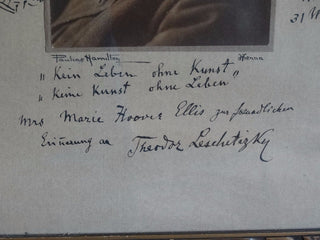 31
Pauline Hamilton Vienna
„ Kein Leben ohne Kunst „
„ Keine Kunst ohne Leben
Mrs Marie Hoover Ellis zur freundlichen
Erinnerung an Theodor Leschetizky